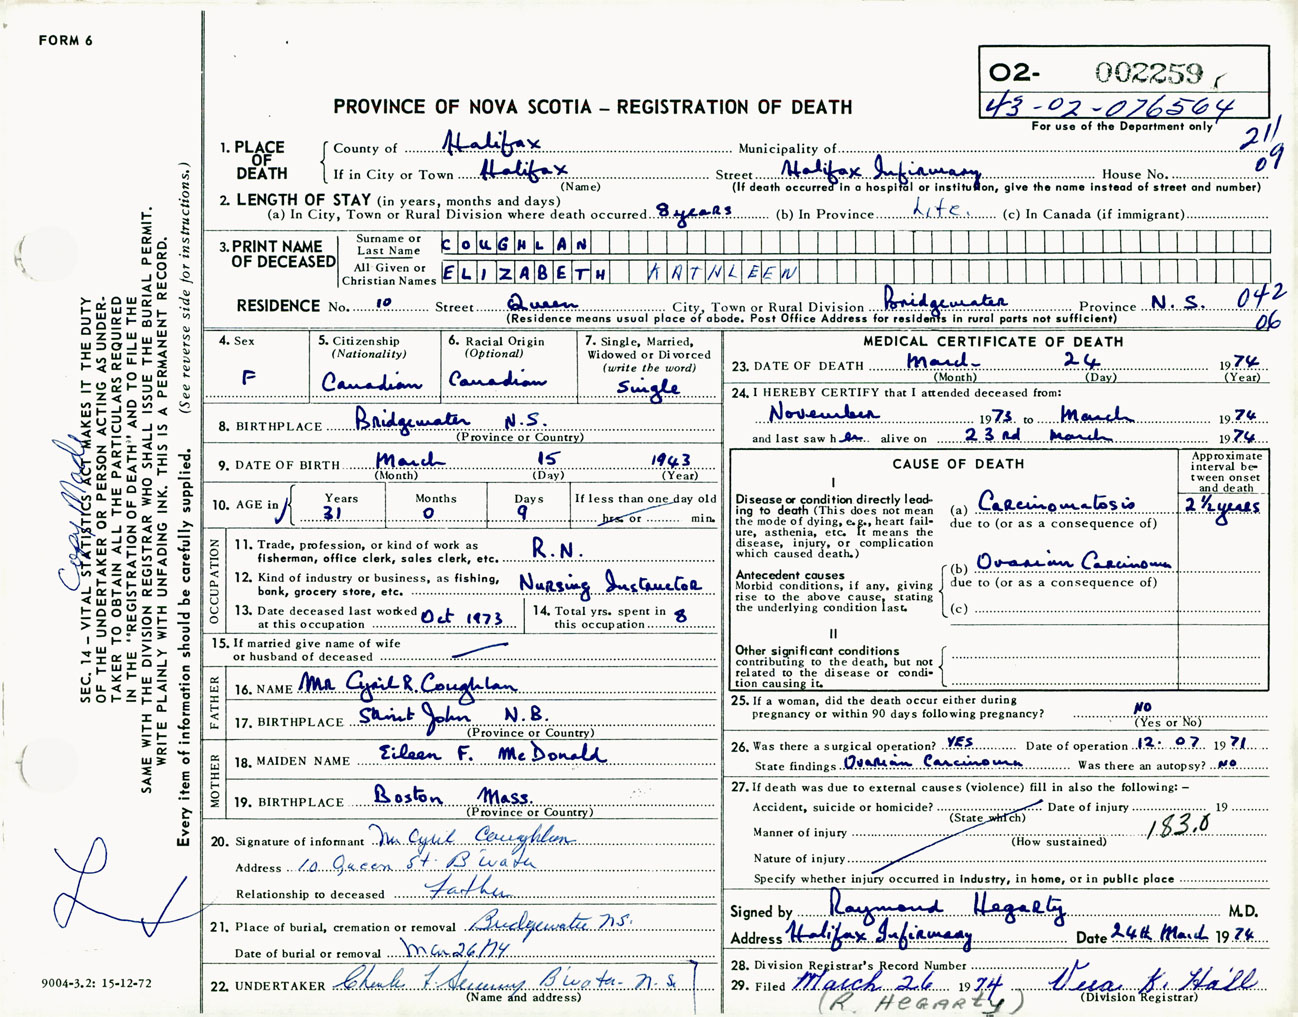 FORM 6
O2- 002259
43-02-076564
For use of the Department only
211
09
PROVINCE OF NOVA SCOTIA – REGISTRATION OF DEATH
1. PLACE OF DEATH
County of Halifax Municipality of
If in City or Town Halifax Street Halifax Infirmary House No.
(Name) (If death occurred in a hospital or institution, give the name instead of street and number)
2. LENGTH OF STAY (in years, months and days)
(a) In City, Town or Rural Division where death occurred 8 years (b) In Province Life. (c) In Canada (if immigrant)
3. PRINT NAME OF DECEASED
Surname or Last Name COUGHLAN
All Given or Christian Names ELIZABETH KATHLEEN
RESIDENCE No. 10 Street Queen City, Town or Rural Division Bridgewater Province N.S. 042
06
(Residence means usual place of abode. Post Office Address for residents in rural parts not sufficient)
4. Sex
F
5. Citizenship
(Nationality)
Canadian
6. Racial Origin
(Optional)
Canadian
7. Single, Married,
Widowed or Divorced
(write the word)
Single
8. BIRTHPLACE Bridgewater N.S.
(Province or Country)
9. DATE OF BIRTH March 15 1943
(Month) (Day) (Year)
10. AGE in
Years Months Days If less than one day old
31 0 9 hrs. or min.
OCCUPATION
11. Trade, profession, or kind of work as
fisherman, office clerk, sales clerk, etc. R.N.
12. Kind of industry or business, as fishing,
bank, grocery store, etc. Nursing Instructor
13. Date deceased last worked
at this occupation Oct 1973
14. Total yrs. spent in
this occupation 8
15. If married give name of wife
or husband of deceased
FATHER
16. NAME Mr Cyril R. Coughlan
17. BIRTHPLACE Saint John N.B.
(Province or Country)
MOTHER
18. MAIDEN NAME Eileen F. McDonald
19. BIRTHPLACE Boston Mass.
(Province or Country)
20. Signature of informant Mr Cyril Coughlan
Address 10 Queen St. B'water
Relationship to deceased Father
21. Place of burial, cremation or removal Bridgewater NS.
Date of burial or removal Mar 26/74
22. UNDERTAKER B'water N.S.
(Name and address)
MEDICAL CERTIFICATE OF DEATH
23. DATE OF DEATH March 24 1974
(Month) (Day) (Year)
24. I HEREBY CERTIFY that I attended deceased from:
November 1973 to March 1974
and last saw her alive on 23rd March 1974
CAUSE OF DEATH
Approximate
interval be-
tween onset
and death
I
Disease or condition directly lead-
ing to death (This does not mean
the mode of dying, e.g., heart fail-
ure, asthenia, etc. It means the
disease, injury, or complication
which caused death.)
(a) Carcinomatosis 2½ years
due to (or as a consequence of)
Antecedent causes
Morbid conditions, if any, giving
rise to the above cause, stating
the underlying condition last.
(b) Ovarian Carcinoma
due to (or as a consequence of)
(c)
II
Other significant conditions
contributing to the death, but not
related to the disease or condi-
tion causing it.
25. If a woman, did the death occur either during
pregnancy or within 90 days following pregnancy? NO
(Yes or No)
26. Was there a surgical operation? YES Date of operation 12. 07 1971
State findings Ovarian Carcinoma Was there an autopsy? NO
27. If death was due to external causes (violence) fill in also the following: –
Accident, suicide or homicide? Date of injury 19
(State which)
Manner of injury 183.0
(How sustained)
Nature of injury
Specify whether injury occurred in industry, in home, or in public place
Signed by Raymond Hegarty M.D.
Address Halifax Infirmary Date 24th March 1974
28. Division Registrar's Record Number
29. Filed March 26 1974 Vera K. Hall
(R. HEGARTY) (Division Registrar)
SEC. 14 – VITAL STATISTICS ACT MAKES IT THE DUTY
OF THE UNDERTAKER OR PERSON ACTING AS UNDER-
TAKER TO OBTAIN ALL THE PARTICULARS REQUIRED
IN THE "REGISTRATION OF DEATH" AND TO FILE THE
SAME WITH THE DIVISION REGISTRAR WHO SHALL ISSUE THE BURIAL PERMIT.
WRITE PLAINLY WITH UNFADING INK. THIS IS A PERMANENT RECORD.
Every item of information should be carefully supplied. (See reverse side for instructions.)
Copy Made
9004-3.2: 15-12-72